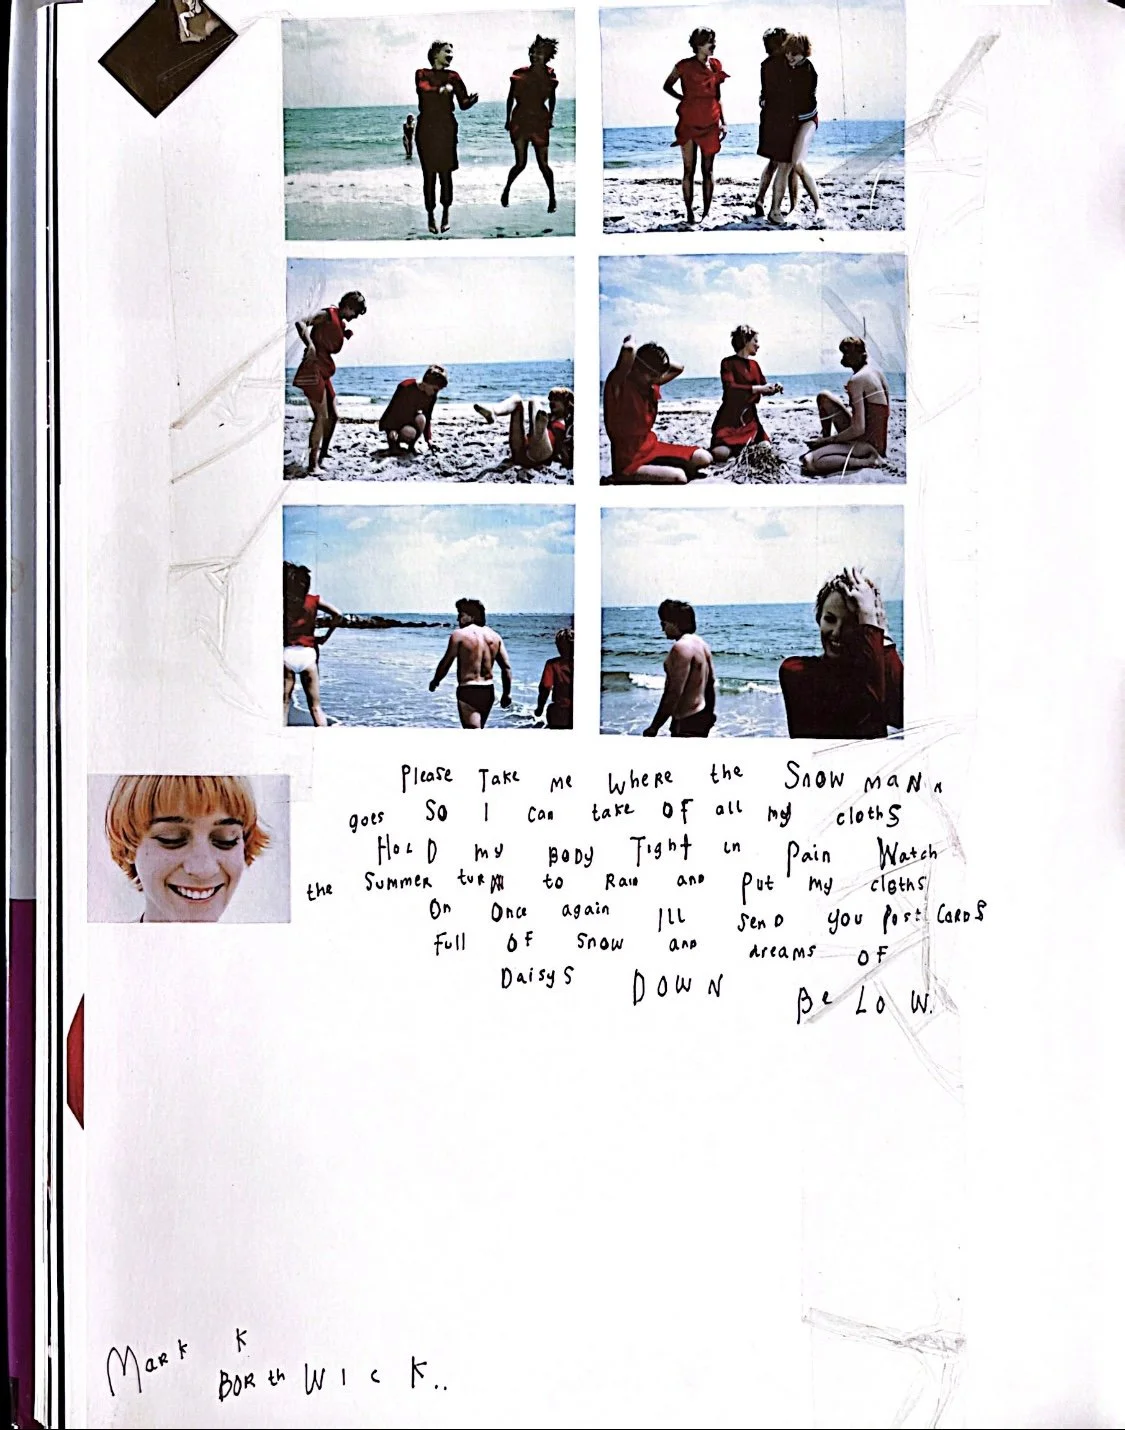 Please Take me Where the Snow maN
goes So I can take OF all my cloths
HoLD my BoDy Tight in Pain Watch
the Summer turn to Rain anD Put my cloths
On Once again Ill SenD you PostCaRDS
Full OF Snow anD dreams OF
DaisyS DOWN Be LOW.
MaRk K
BORthWIcK..